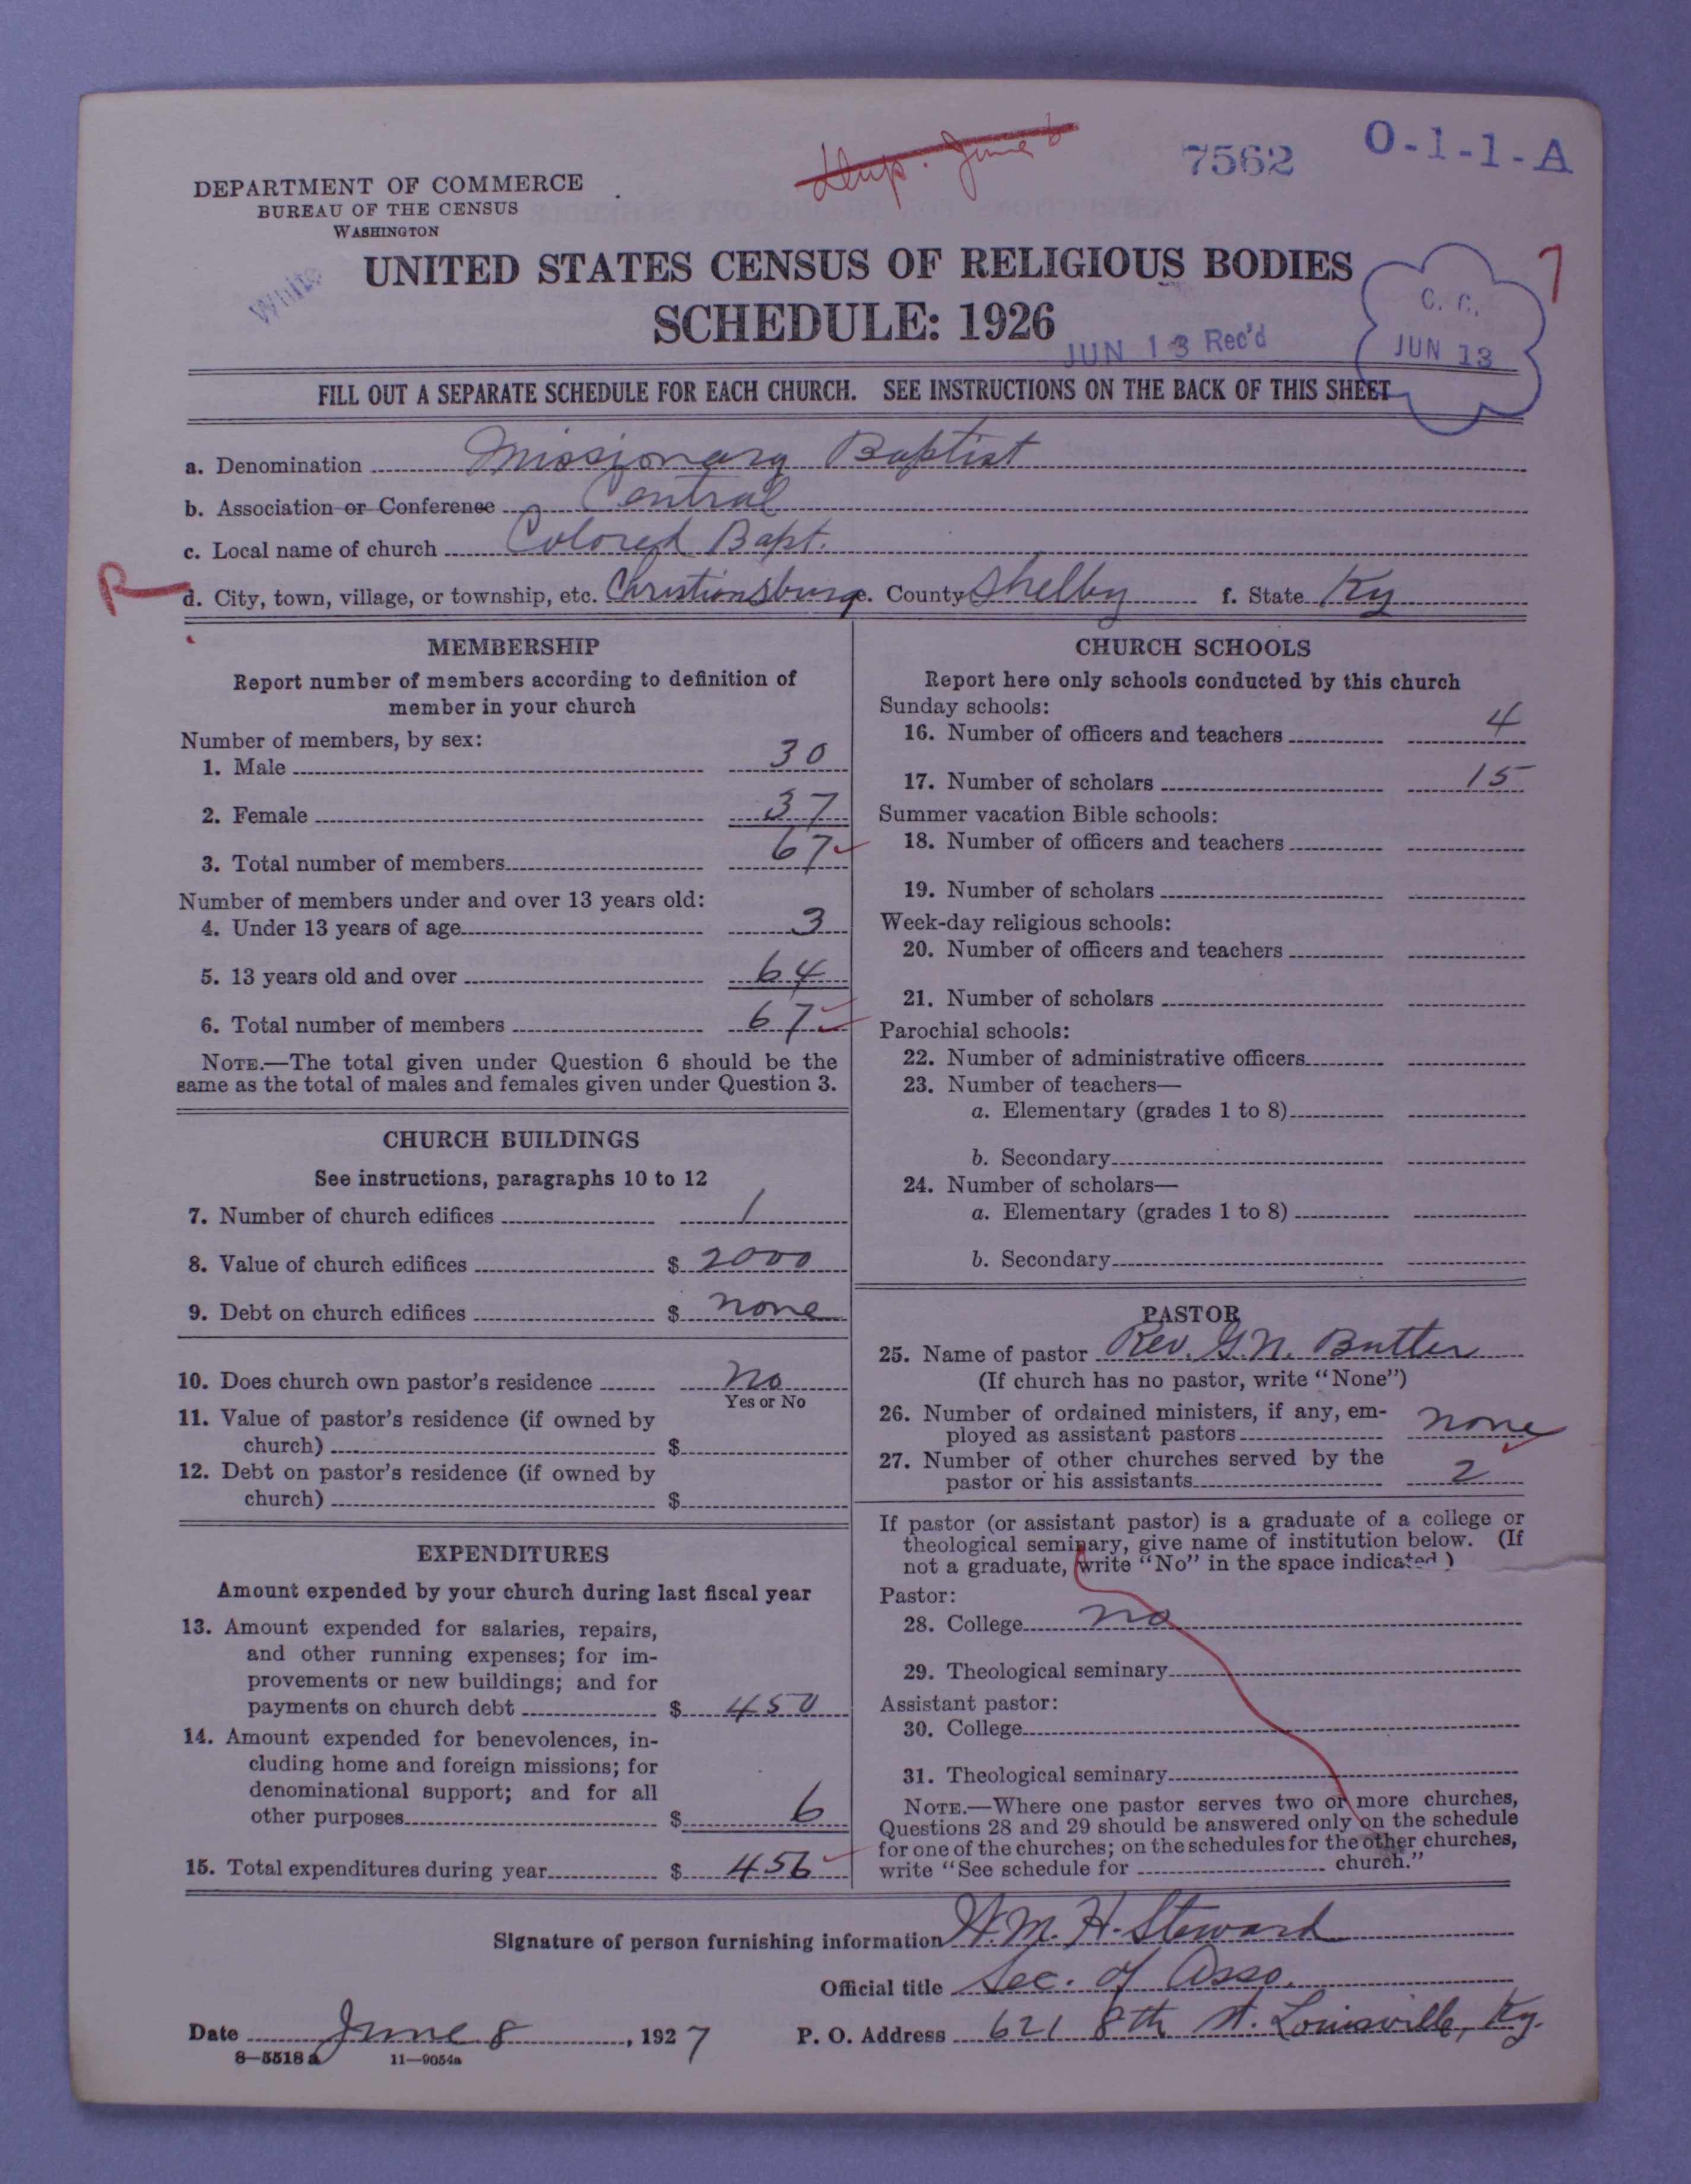 Dup. June 6
7562
O-1-1-A
DEPARTMENT OF COMMERCE
BUREAU OF THE CENSUS
WASHINGTON
White
UNITED STATES CENSUS OF RELIGIOUS BODIES
SCHEDULE: 1926
JUN 13 Rec'd
C. C.
JUN 13
7
FILL OUT A SEPARATE SCHEDULE FOR EACH CHURCH. SEE INSTRUCTIONS ON THE BACK OF THIS SHEET
a. Denomination Missionary Baptist
b. Association or Conference Central
c. Local name of church Colored Bapt.
R
d. City, town, village, or township, etc. Christionsburg e. County Shelby f. State Ky
MEMBERSHIP
Report number of members according to definition of
member in your church
Number of members, by sex:
1. Male 30
2. Female 37
3. Total number of members 67
Number of members under and over 13 years old:
4. Under 13 years of age 3
5. 13 years old and over 64
6. Total number of members 67
NOTE.—The total given under Question 6 should be the
same as the total of males and females given under Question 3.
CHURCH BUILDINGS
See instructions, paragraphs 10 to 12
7. Number of church edifices 1
8. Value of church edifices $ 2000
9. Debt on church edifices $ none
10. Does church own pastor's residence No
Yes or No
11. Value of pastor's residence (if owned by
church) $
12. Debt on pastor's residence (if owned by
church) $
EXPENDITURES
Amount expended by your church during last fiscal year
13. Amount expended for salaries, repairs,
and other running expenses; for im-
provements or new buildings; and for
payments on church debt $ 450
14. Amount expended for benevolences, in-
cluding home and foreign missions; for
denominational support; and for all
other purposes $ 6
15. Total expenditures during year $ 456
CHURCH SCHOOLS
Report here only schools conducted by this church
Sunday schools:
16. Number of officers and teachers 4
17. Number of scholars 15
Summer vacation Bible schools:
18. Number of officers and teachers
19. Number of scholars
Week-day religious schools:
20. Number of officers and teachers
21. Number of scholars
Parochial schools:
22. Number of administrative officers
23. Number of teachers—
a. Elementary (grades 1 to 8)
b. Secondary
24. Number of scholars—
a. Elementary (grades 1 to 8)
b. Secondary
PASTOR
25. Name of pastor Rev. G. N. Butler
(If church has no pastor, write "None")
26. Number of ordained ministers, if any, em-
ployed as assistant pastors none
27. Number of other churches served by the
pastor or his assistants 2
If pastor (or assistant pastor) is a graduate of a college or
theological seminary, give name of institution below. (If
not a graduate, write "No" in the space indicated)
Pastor:
28. College no
29. Theological seminary
Assistant pastor:
30. College
31. Theological seminary
NOTE.—Where one pastor serves two or more churches,
Questions 28 and 29 should be answered only on the schedule
for one of the churches; on the schedules for the other churches,
write "See schedule for church."
Signature of person furnishing information Wm. H. Steward
Official title Sec. of Asso.
Date June 8, 1927 P. O. Address 621 8th St. Louisville, Ky.
8—5518 a 11—9054a